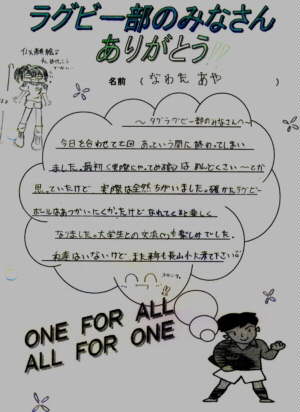 ラグビー部のみなさん
ありがとう!!!
名前 (なわた あや)
～タグラグビー部のみなさんへ～
今日を合わせて七回 あっという間に終わってしまい
ました。最初(実際にやってみる前)は めんどくさい〜とか
思っていたけど 実際は全然ちがいました。確かにラグビー
ボールはあつかいにくかったけど なれてくると楽しく
なりました。大学生との交流も楽しめてした。
私達はいないけど また来年も長山小に来て下さい
ONE FOR ALL
ALL FOR ONE